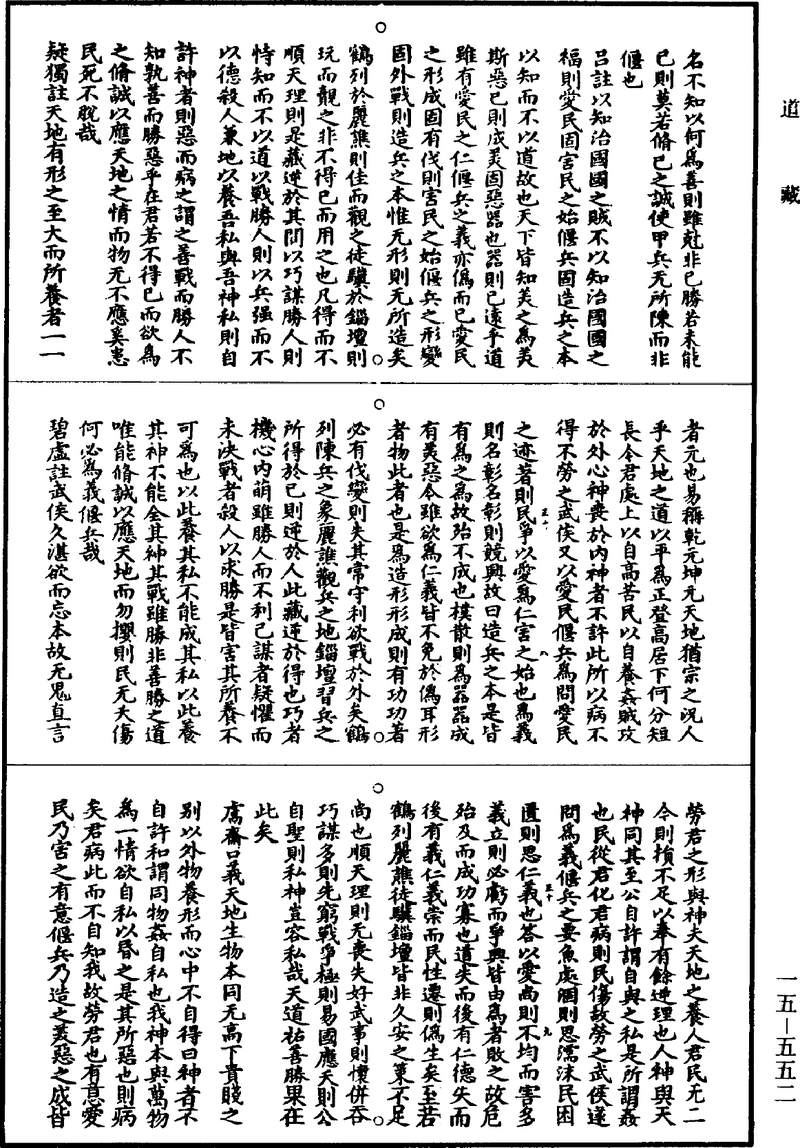 道藏
名不知以何爲善則雖尅非已勝若未能
已則莫若脩已之誠使甲兵无所陳而非
偃也
呂註以知治國國之賊不以知治國國之
福則愛民固害民之始偃兵固造兵之本
以知而不以道故也天下皆知美之爲美
斯惡已則成美固惡器也器則已遠乎道
雖有愛民之仁偃兵之義亦僞而已愛民
之形成固有伐則害民之始偃兵之形變
固外戰則造兵之本惟无形則无所造矣
鶴列於麗譙則佳而觀之徒驥於錙壇則
玩而觀之非不得已而用之也凡得而不
順天理則是藏逆於其間以巧謀勝人則
恃知而不以道以戰勝人則以兵强而不
以德殺人兼地以養吾私與吾神私則自
許神者則惡而病之謂之善戰而勝人不
知孰善而勝惡乎在君若不得已而欲爲
之脩誠以應天地之情而物无不應奚患
民死不脫哉
疑獨註天地有形之至大而所養者一一
者元也易稱乾元坤元天地猶宗之况人
乎天地之道以平爲正登高居下何分短
長令君處上以自高苦民以自養姦賊攻
於外心神喪於内神者不許此所以病不
得不勞之武侯又以愛民偃兵爲問愛民
之迹著則民爭以愛爲仁害之始也爲義
則名彰名彰則競興故曰造兵之本是皆
有爲之爲故殆不成也樸散則爲器器成
有美惡令雖欲爲仁義皆不免於僞耳形
者物此者也是爲造形形成則有功功者
必有伐變則失其常守利欲戰於外矣鶴
列陳兵之象麗譙觀兵之地錙壇習兵之
所得於已則逆於人此藏逆於得也巧者
機心内萌雖勝人而不利已謀者疑懼而
未決戰者殺人以求勝是皆害其所養不
可爲也以此養其私不能成其私以此養
其神不能全其神其戰雖勝非善勝之道
唯能脩誠以應天地而勿攖則民无夭傷
何必爲義偃兵哉
碧虛註武侯久湛欲而忘本故无鬼直言
勞君之形與神夫天地之養人君民无二
今則損不足以奉有餘逆理也人神與天
神同其至公自許謂自與之私是所謂姦
也民從君化君病則民傷故勞之武侯遂
問爲義偃兵之要魚處涸則思濡沫民困
匱則思仁義也答以愛尚則不均而害多
義立則必虧而爭興皆由爲者敗之故危
殆及而成功寡也道失而後有仁德失而
後有義仁義崇而民性遷則僞生矣至若
鶴列麗譙徒驥錙壇皆非久安之策不足
尚也順天理則无喪失好武事則懷併吞
巧謀多則先窮戰爭極則易國應天則公
自聖則私神豈容私哉天道祐善勝果在
此矣
鬳齋口義天地生物本同元高下貴賤之
別以外物養形而心中不自得曰神者不
自許和謂同物姦自私也我神本與萬物
爲一情欲自私以昬之是其所惡也則病
矣君病此而不自知我故勞君也有意愛
民乃害之有意偃兵乃造之美惡之成皆
一五―五五二